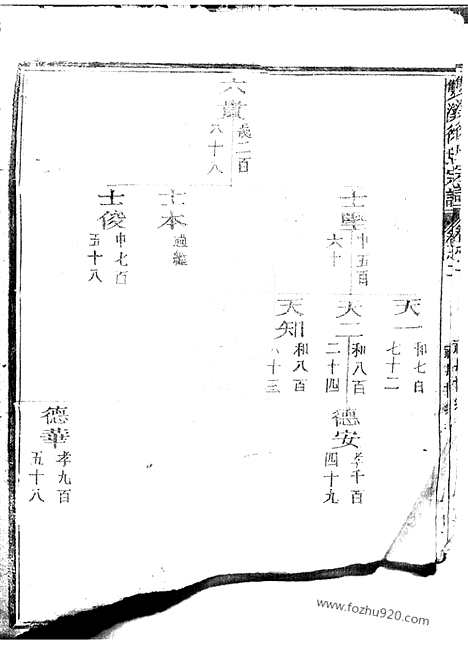 六貴
歲二百
六十八
士學
申五百
六十
士本
過繼
士俊
申七百
五十八
天一
和七百
七十二
天二
和八百
二十四
天知
和八百
十三
德安
孝千百
四十九
德華
孝九百
五十八
www.fozhu920.com